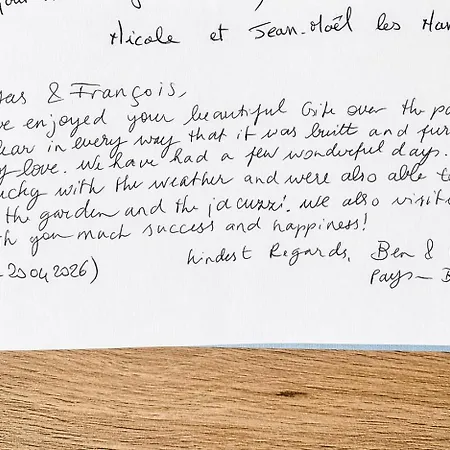 Nicole et Jean-Noël les Mar
& François,
ve enjoyed your beautiful Gîte over the pa
lear in every way that it was built and fur
y love. We have had a few wonderful days.
ucky with the weather and were also able to
the garden and the jacuzzi. We also visit
h you much success and happiness!
Kindest Regards, Ben &
- 20 04 2026)
Pays-B